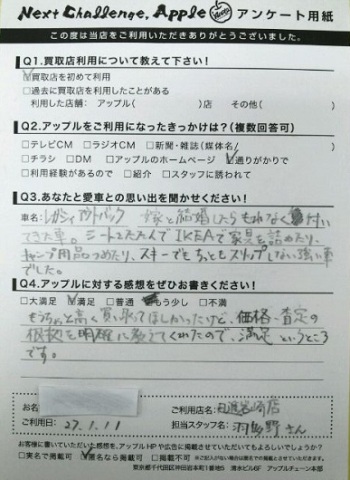 Next Challenge. Apple アンケート用紙
この度は当店をご利用いただきありがとうございました。
Q1.買取店利用について教えて下さい!
☑買取店を初めて利用
□過去に買取店を利用したことがある
利用した店舗：アップル( )店 その他( )
Q2.アップルをご利用になったきっかけは?(複数回答可)
□テレビCM □ラジオCM □新聞・雑誌(媒体名/ )
□チラシ □DM □アップルのホームページ ☑通りがかりで
□利用経験があるので □紹介 □スタッフに誘われて
Q3.あなたと愛車との思い出を聞かせください!
車名：レガシィアウトバック 嫁と結婚したらもれなく付い
てきた車。シートたたんでIKEAで家具を詰めたり、
キャンプ用品つめたり、スキーでもちっともスリップしない強い車
でした。
Q4.アップルに対する感想をぜひお書きください!
□大満足 ☑満足 □普通 もう少し □不満
もうちょっと高く買い取ってほしかったけど、価格・査定の
根拠を明確に教えてくれたので、満足というところ
です。
お名
ご利用日： 27.1.11
ご利用店名：
店
担当スタッフ名： 羽多野さん
お客様に書いていただいた感想を、アップルHPや広告に掲載させていただいてもよろしいでしょうか?
□実名で掲載可 ☑匿名なら掲載可 □掲載不可
東京都千代田区神田岩本町1番地5 清水ビル6F アップルチェーン本部